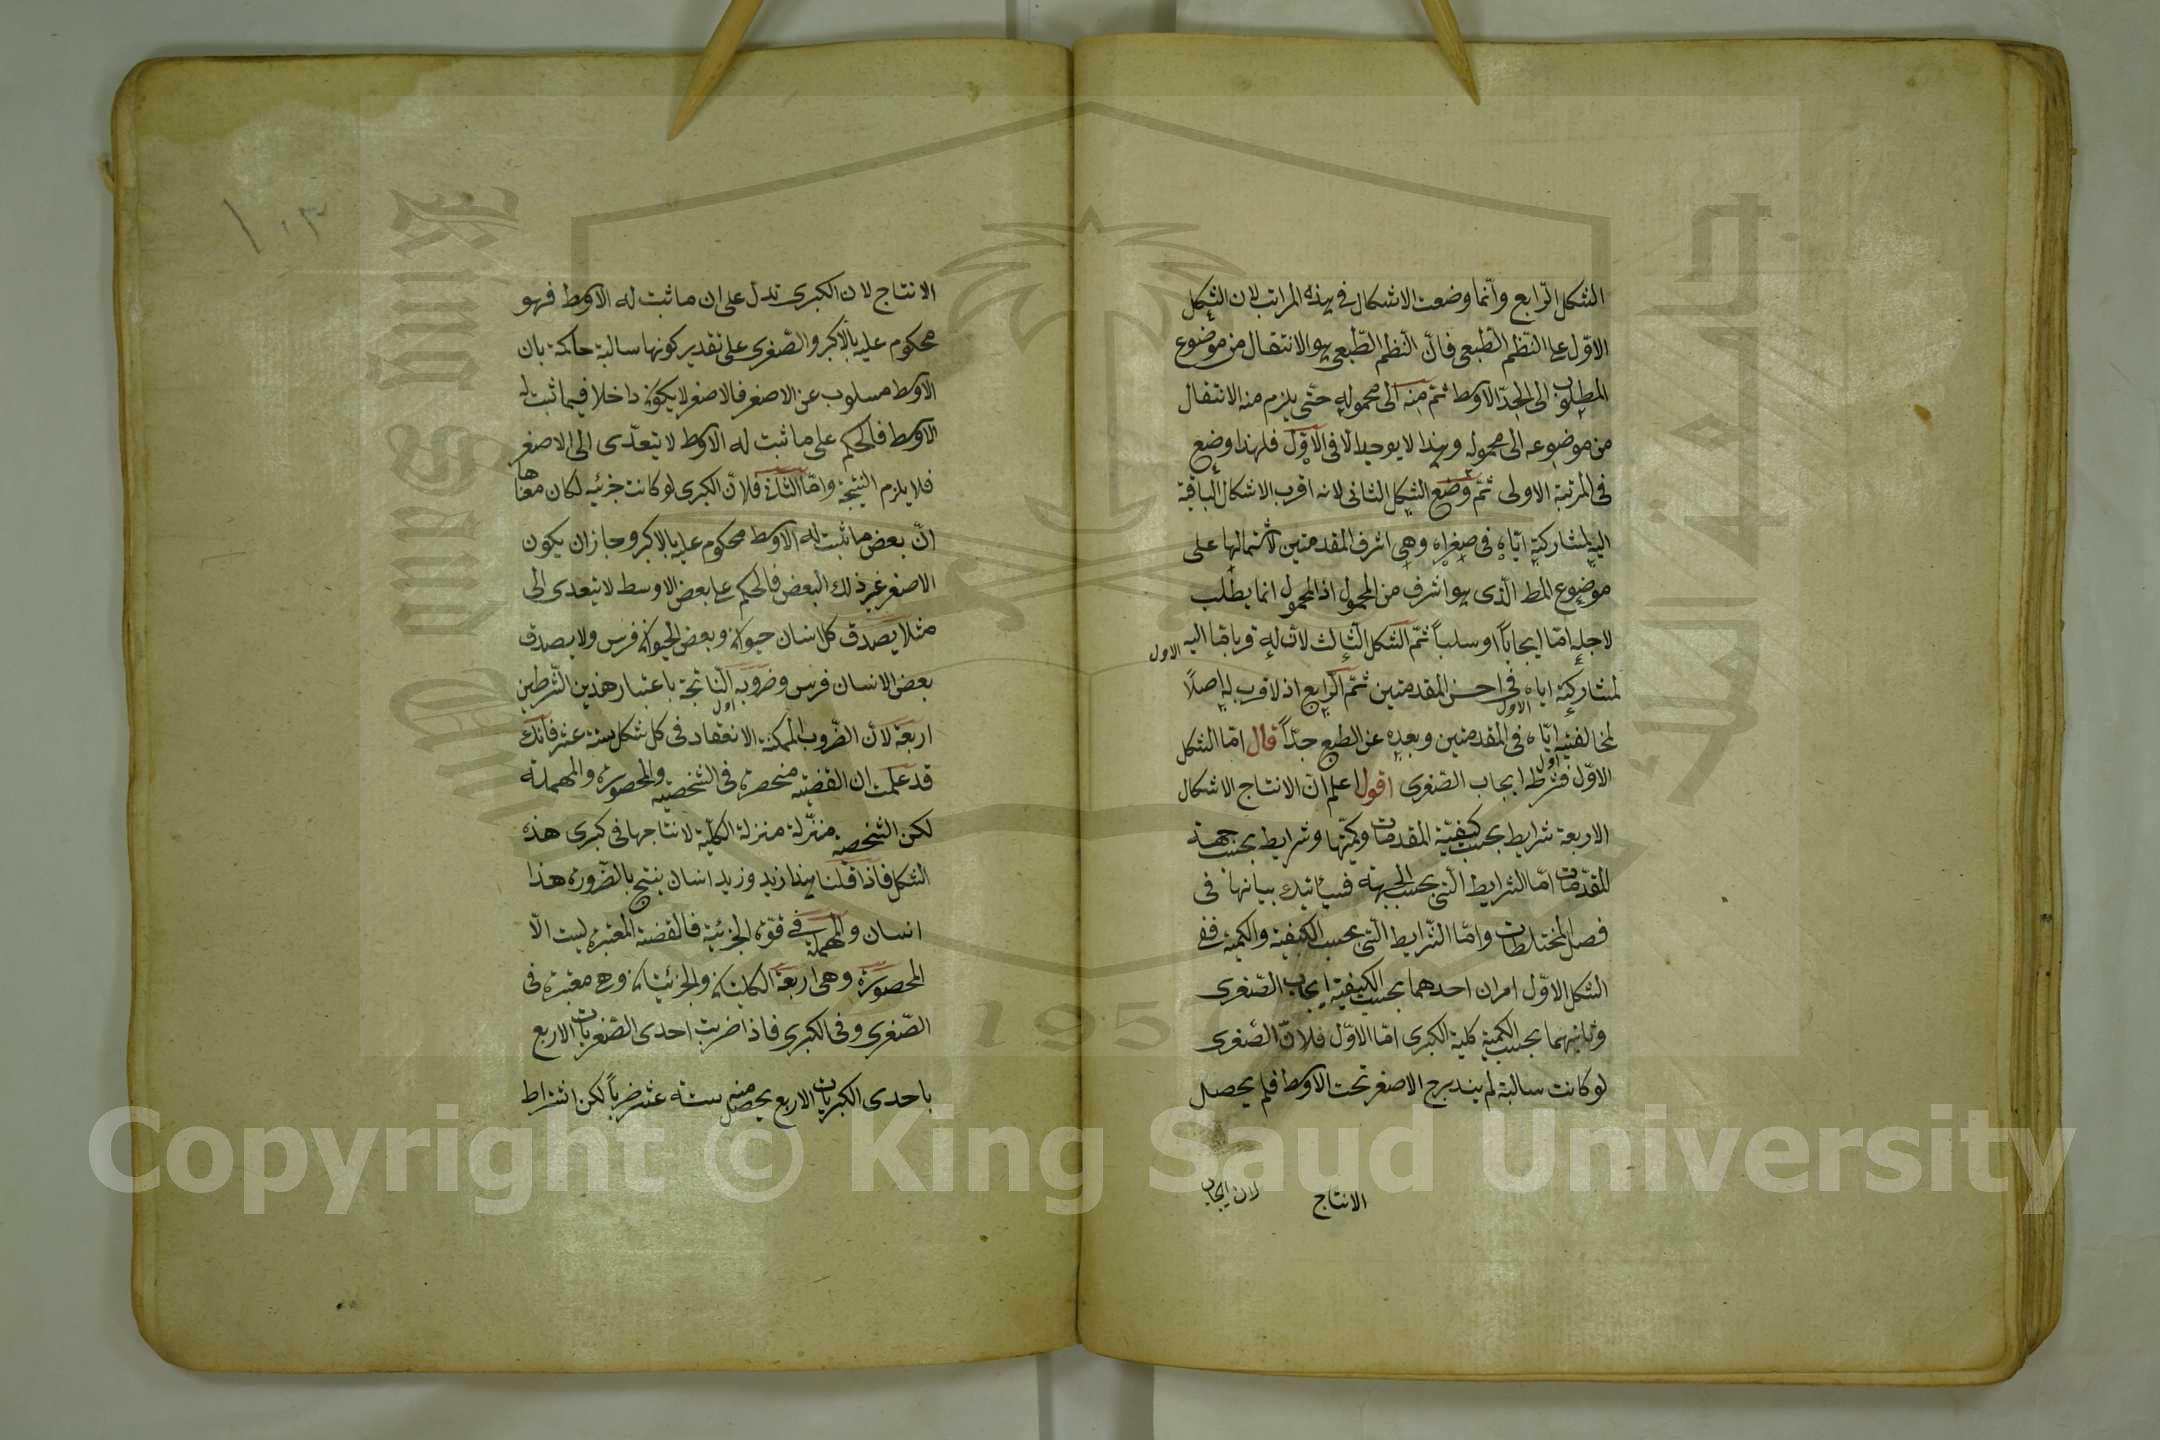 الشكل الرّابع وانّما وضعت الاشكال فى هذه المراتب لان الشكل
الاوّل على النّظم الطّبعى فانّ النّظم الطّبعى هو الانتقال من موضوع
المطلوب الى الحدّ الاوسط ثم منه الى محموله حتّى يلزم منه الانتقال
من موضوعه الى محموله وهذا لا يوجد الّا فى الاوّل فلهذا وضع
فى المرتبة الاولى ثمّ وضع الشكل الثانى لانه اقرب الاشكال الباقية
اليه لمشاركته ايّاه فى صغراه وهى اشرف المقدمتين لاشتمالها على
موضوع المط الّذى هو اشرف من المحمول اذ المحمول انما يطلب
لاجله امّا ايجاباً او سلباً ثمّ الشكل الثالث لانّ له قرباً ما اليه
الاول
لمشاركته اياه فى اخس المقدمتين ثمّ الرابع اذ لا قرب له اصلاً
الاول
لمخالفته ايّاه فى المقدمتين وبعده عن الطبع جدّاً قال امّا الشكل
الاوّل فشرطه ايجاب الصّغرى اقول اعلم انّ الانتاج الاشكال
الاربعة شرايط بحسب كيفيّة المقدمات وكميّتها وشرايط بحسب جهة
المقدّمات امّا الشرايط الّتى بحسب الجهة فسيأتيك بيانها فى
فصل المختلطات وامّا الشّرايط الّتى بحسب الكيفية والكمية ففى
الشكل الاوّل امران احدهما بحسب الكيفية ايجاب الصّغرى
وثانيهما بحسب الكمية كلية الكبرى امّا الاوّل فلانّ الصّغرى
لو كانت سالبة لم يندرج الاصغر تحت الاوسط فلم يحصل
الانتاج لان ايجاب
١٠٣
الانتاج لان الكبرى تدلّ على ان ما ثبت له الاوسط فهو
محكوم عليه بالاكبر والصّغرى على تقدير كونها سالبة حاكمة بان
الاوسط مسلوب عن الاصغر فالاصغر لا يكون داخلا فيما ثبت له
الاوسط فالحكم على ما ثبت له الاوسط لا يتعدّى الى الاصغر
فلا يلزم النتيجة وامّا الثّانى فلانّ الكبرى لو كانت جزئيه لكان معناها
انّ بعض ما ثبت له الاوسط محكوم عليه بالاكبر وجاز ان يكون
الاصغر غير ذلك البعض فالحكم على بعض الاوسط لا يتعدى الى
مثلا يصدق كل انسان حيوان وبعض الحيوان فرس ولا يصدق
بعض الانسان فرس وضروبه النّاتجة باعتبار هذين الشّرطين
اربعة لانّ الضّروب الممكنة الانعقاد فى كل شكل ستة عشر فانّك
قد علمت ان القضيّه منحصرة فى الشخصيّه والمحصورة والمهملة
لكن الشخصيّه منزّلة منزلة الكليّة لانتاجها فى كبرى هذه
الشكل فاذا قلنا هذا زيد وزيد انسان ينتج بالضّرورة هذا
انسان والمهملة فى قوّة الجزئية فالقضية المعتبرة ليست الّا
المحصورة وهى اربعة الكليتان والجزئيتان وهى معتبرة فى
الصّغرى وفى الكبرى فاذا ضربت احدى الصّغريات الاربع
باحدى الكبريات الاربع يحصل منه ستة عشر ضرباً لكن اشتراط